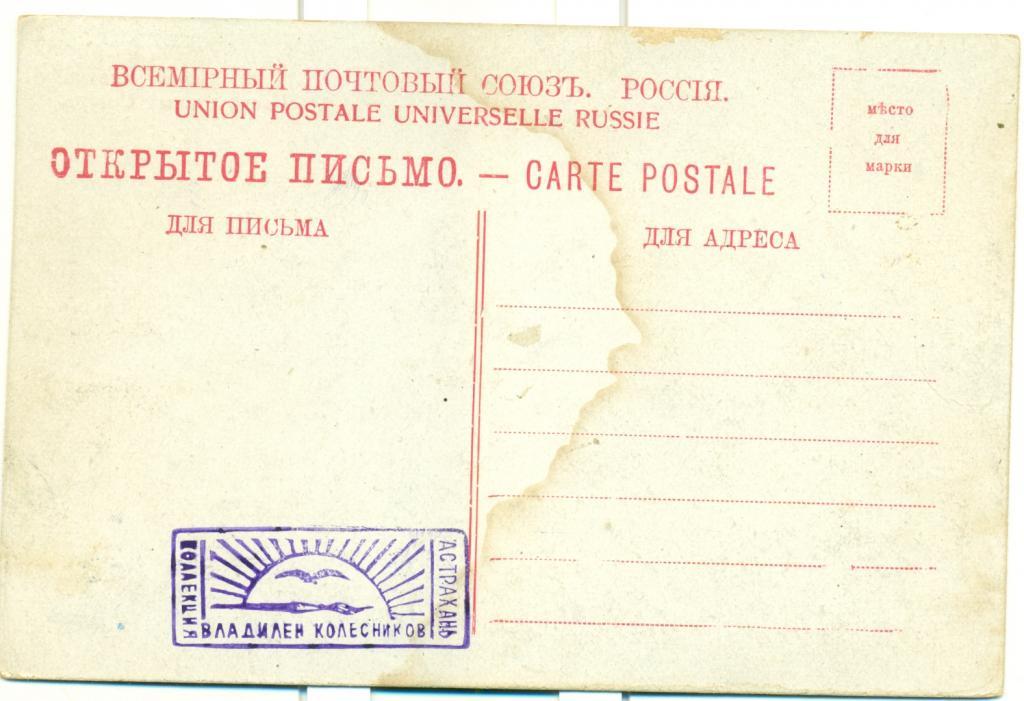 ВСЕМІРНЫЙ ПОЧТОВЫЙ СОЮЗЪ. РОССІЯ.
UNION POSTALE UNIVERSELLE RUSSIE
ОТКРЫТОЕ ПИСЬМО. — CARTE POSTALE
мѣсто
для
марки
ДЛЯ ПИСЬМА
ДЛЯ АДРЕСА
КОЛЛЕКЦИЯ
АСТРАХАНЬ
ВЛАДИЛЕН КОЛЕСНИКОВ